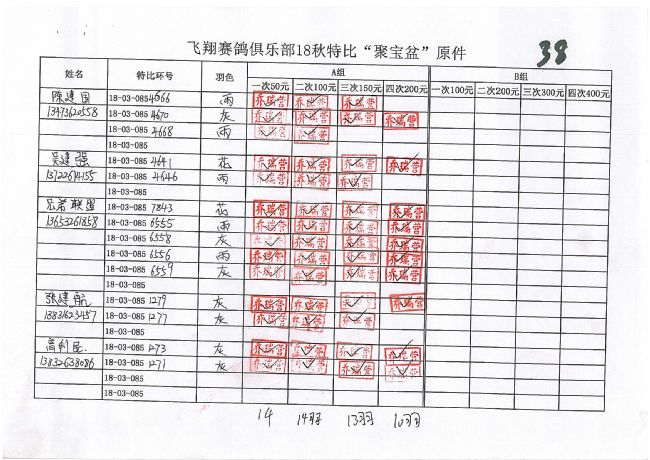 飞翔赛鸽俱乐部18秋特比“聚宝盆”原件 38
姓名 特比环号 羽色 A组 B组
一次50元 二次100元 三次150元 四次200元 一次100元 二次200元 三次300元 四次400元
陈建国 18-03-0854666 雨 乔瑞营 乔瑞营 乔瑞营
13473620558 18-03-0854670 灰 乔瑞营 乔瑞营 乔瑞营 乔瑞营
18-03-0854668 雨 乔瑞营 乔瑞营
18-03-085
吴建强 18-03-085 4641 花 乔瑞营 乔瑞营 乔瑞营 乔瑞营
18-03-085 4646 雨 乔瑞营 乔瑞营 乔瑞营
18-03-085
兄弟联盟 18-03-085 7843 花 乔瑞营 乔瑞营 乔瑞营 乔瑞营
13653261858 18-03-085 6555 雨 乔瑞营 乔瑞营 乔瑞营 乔瑞营
18-03-085 6558 灰 乔瑞营 乔瑞营 乔瑞营 乔瑞营
18-03-085 6556 雨 乔瑞营 乔瑞营 乔瑞营 乔瑞营
18-03-085 6559 灰 乔瑞营 乔瑞营 乔瑞营 乔瑞营
18-03-085
张建航 18-03-085 1279 灰 乔瑞营 乔瑞营 乔瑞营 乔瑞营
13831623457 18-03-085 1277 灰 乔瑞营 乔瑞营 乔瑞营
18-03-085
18-03-085 1273 灰 乔瑞营 乔瑞营 乔瑞营 乔瑞营
13832638086 18-03-085 1271 灰 乔瑞营 乔瑞营 乔瑞营 乔瑞营
18-03-085
18-03-085
14 14羽 13羽 10羽